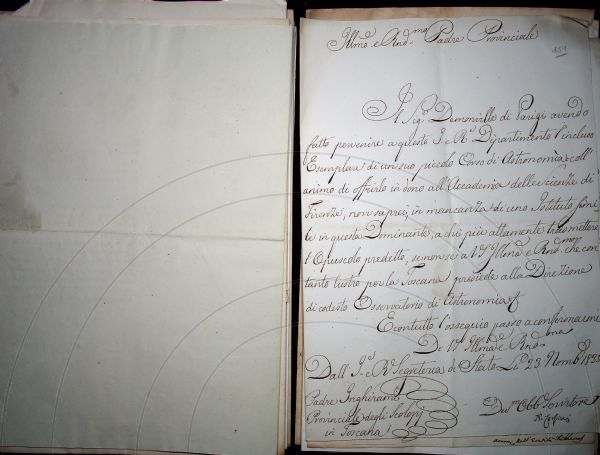 Illmo e Rndmo Padre Provinciale
Il Sigr Demonville di Parigi avendo
fatto pervenire a questo I. e R. Dipartimento l'incluso
Esemplare di un suo piccolo Corso di Astronomia, coll'
animo di offrirlo in dono all'Accademia delle scienze di
Firenze, non saprei, in mancanza di uno Istituto simi
le in questa Dominante, a chi più altamente trasmettere
l'Opuscolo predetto, se non se a V. S. Illma e Rndma che con
tanto lustro per la Toscana presiede alla Direzione
di codesto Osservatorio di Astronomia
E con tutto l'ossequio passo a confermarmi
Di V. S. Illma e Rndma
Dall'I. e R. Segreteria di Stato Li 23 Nombr 1835
Padre Inghirami
Provinciale degli Scolopj
in Toscana
Devmo Obb Servitore